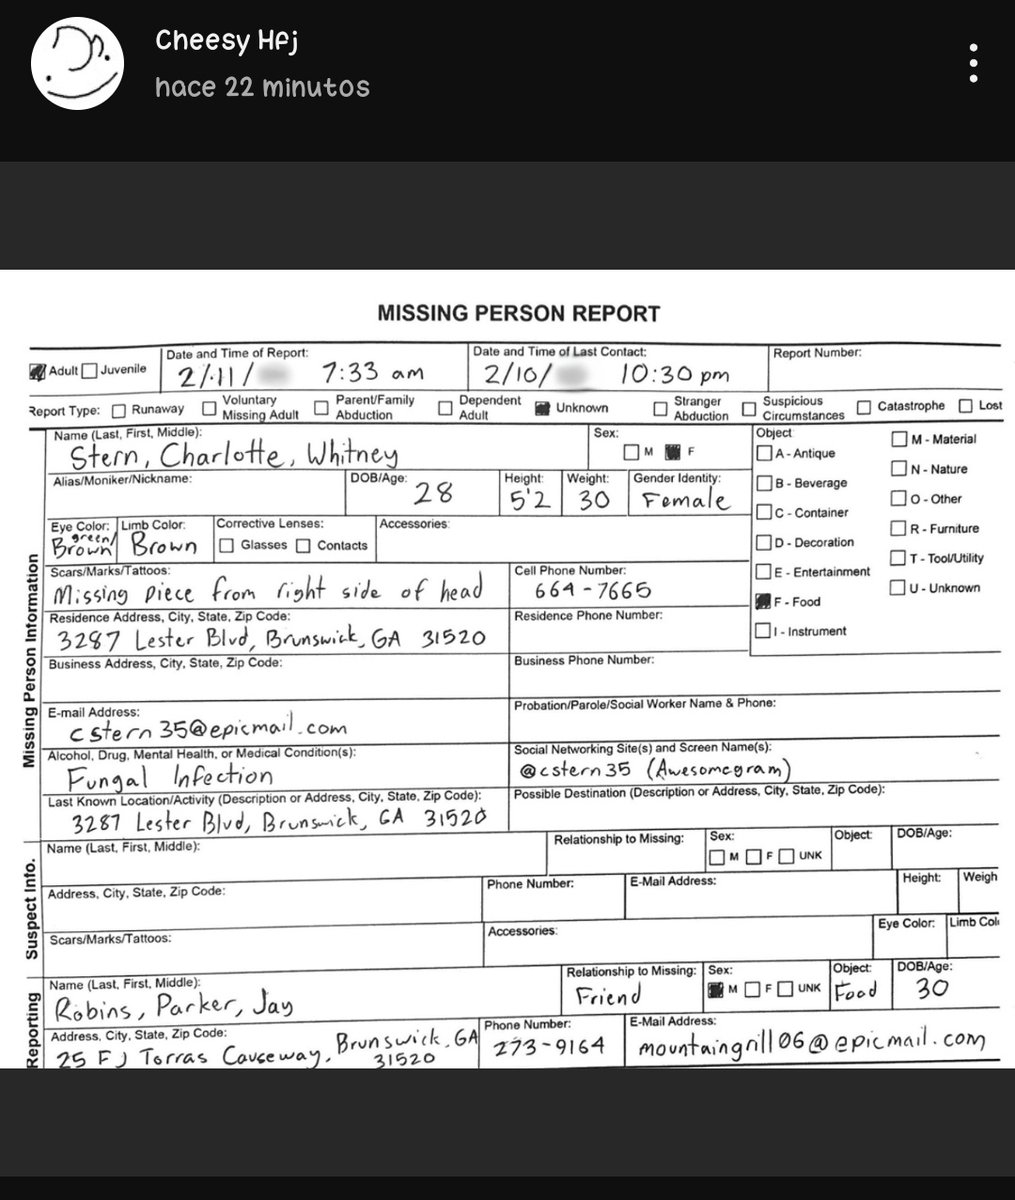 Cheesy Hfj
hace 22 minutos
MISSING PERSON REPORT
Adult Juvenile
Date and Time of Report:
2/11/ 7:33 am
Date and Time of Last Contact:
2/10/ 10:30 pm
Report Number:
Report Type: Runaway Voluntary Missing Adult Parent/Family Abduction Dependent Adult Unknown Stranger Abduction Suspicious Circumstances Catastrophe Lost
Missing Person Information
Name (Last, First, Middle):
Stern, Charlotte, Whitney
Sex:
M F
Object:
A - Antique
B - Beverage
C - Container
D - Decoration
E - Entertainment
F - Food
I - Instrument
M - Material
N - Nature
O - Other
R - Furniture
T - Tool/Utility
U - Unknown
Alias/Moniker/Nickname:
DOB/Age:
28
Height:
5'2
Weight:
30
Gender Identity:
Female
Eye Color:
green/
Brown
Limb Color:
Brown
Corrective Lenses:
Glasses Contacts
Accessories:
Scars/Marks/Tattoos:
Missing piece from right side of head
Cell Phone Number:
664-7665
Residence Address, City, State, Zip Code:
3287 Lester Blvd, Brunswick, GA 31520
Residence Phone Number:
Business Address, City, State, Zip Code:
Business Phone Number:
E-mail Address:
cstern35@epicmail.com
Probation/Parole/Social Worker Name & Phone:
Alcohol, Drug, Mental Health, or Medical Condition(s):
Fungal Infection
Social Networking Site(s) and Screen Name(s):
@cstern35 (Awesomegram)
Last Known Location/Activity (Description or Address, City, State, Zip Code):
3287 Lester Blvd, Brunswick, GA 31520
Possible Destination (Description or Address, City, State, Zip Code):
Suspect Info.
Name (Last, First, Middle):
Relationship to Missing:
Sex:
M F UNK
Object:
DOB/Age:
Address, City, State, Zip Code:
Phone Number:
E-Mail Address:
Height:
Weigh
Scars/Marks/Tattoos:
Accessories:
Eye Color:
Limb Col
Reporting
Name (Last, First, Middle):
Robins, Parker, Jay
Relationship to Missing:
Friend
Sex:
M F UNK
Object:
Food
DOB/Age:
30
Address, City, State, Zip Code:
25 FJ Torras Causeway, Brunswick, GA
31520
Phone Number:
273-9164
E-Mail Address:
mountaingrill06@epicmail.com